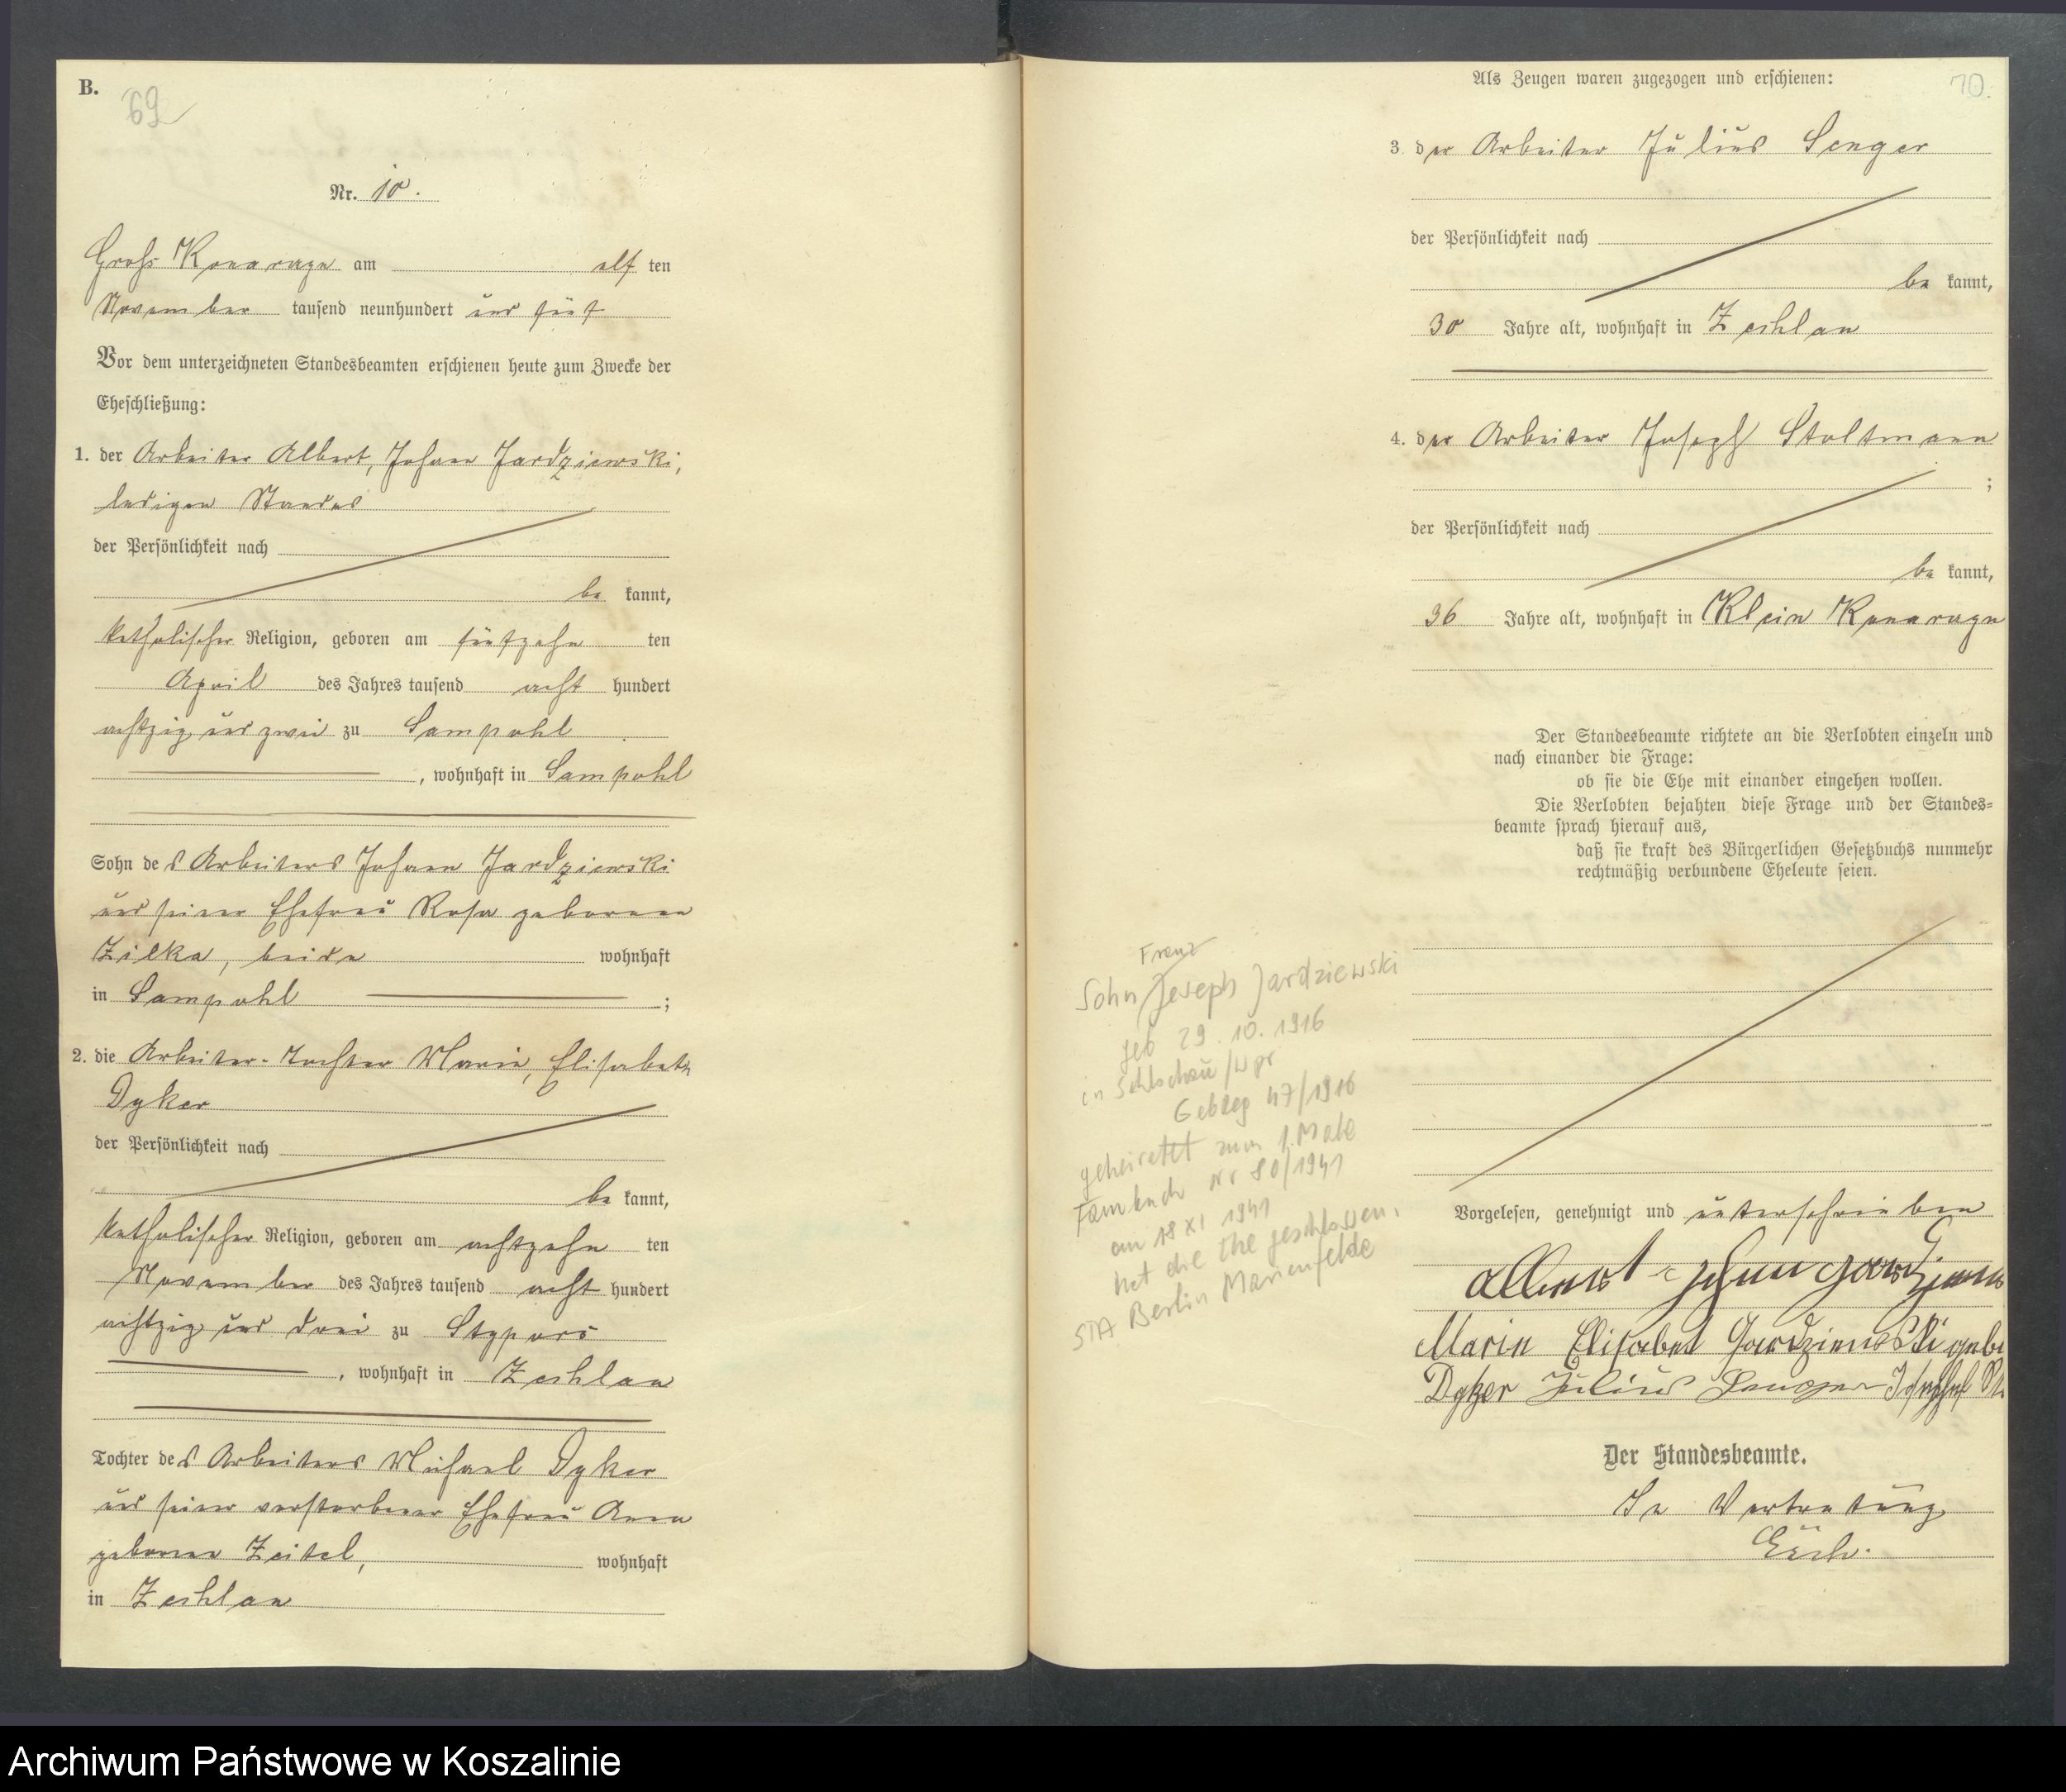 B.
69
Nr. 10.
Gross Konarzyn am elf ten
November tausend neunhundert und fünf
Vor dem unterzeichneten Standesbeamten erschienen heute zum Zwecke der
Eheschließung:
1. der Arbeiter Albert, Johann Jardziewski,
ledigen Standes
der Persönlichkeit nach
be kannt,
katholischer Religion, geboren am fünfzehn ten
April des Jahres tausend acht hundert
achtzig und zwei zu Sampohl
, wohnhaft in Sampohl
Sohn des Arbeiters Johann Jardziewski
und seiner Ehefrau Rosa geborenen
Zilka, beide wohnhaft
in Sampohl ;
2. die Arbeiter-Tochter Marie, Elisabeth
Dyker
der Persönlichkeit nach
be kannt,
katholischer Religion, geboren am achtzehn ten
November des Jahres tausend acht hundert
achtzig und drei zu
, wohnhaft in Zechlau
Tochter des Arbeiters Michael Dyker
und seiner verstorbenen Ehefrau Anna
geborenen Zeitel, wohnhaft
in Zechlau
Als Zeugen waren zugezogen und erschienen:
70.
3. der Arbeiter Julius Senger
der Persönlichkeit nach
be kannt,
30 Jahre alt, wohnhaft in Zechlau
4. der Arbeiter Joseph Stoltmann
;
der Persönlichkeit nach
be kannt,
36 Jahre alt, wohnhaft in Klein Konarzyn
Der Standesbeamte richtete an die Verlobten einzeln und
nach einander die Frage:
ob sie die Ehe mit einander eingehen wollen.
Die Verlobten bejahten diese Frage und der Standes-
beamte sprach hierauf aus,
daß sie kraft des Bürgerlichen Gesetzbuchs nunmehr
rechtmäßig verbundene Eheleute seien.
Franz
Sohn Joseph Jardziewski
geb 29.10.1916
in Schlochau/Wpr
Gebreg 47/1916
geheiratet zum 1. Male
Fambuch Nr 80/1941
am 18 XI 1941
hat die Ehe geschlossen.
STA Berlin Marienfelde
Vorgelesen, genehmigt und unterschrieben
Albert Johann
Marie Elisabet Jardziewski gebo
Dyker Julius Senger Joseph St
Der Standesbeamte.
In Vertretung
Archiwum Państwowe w Koszalinie